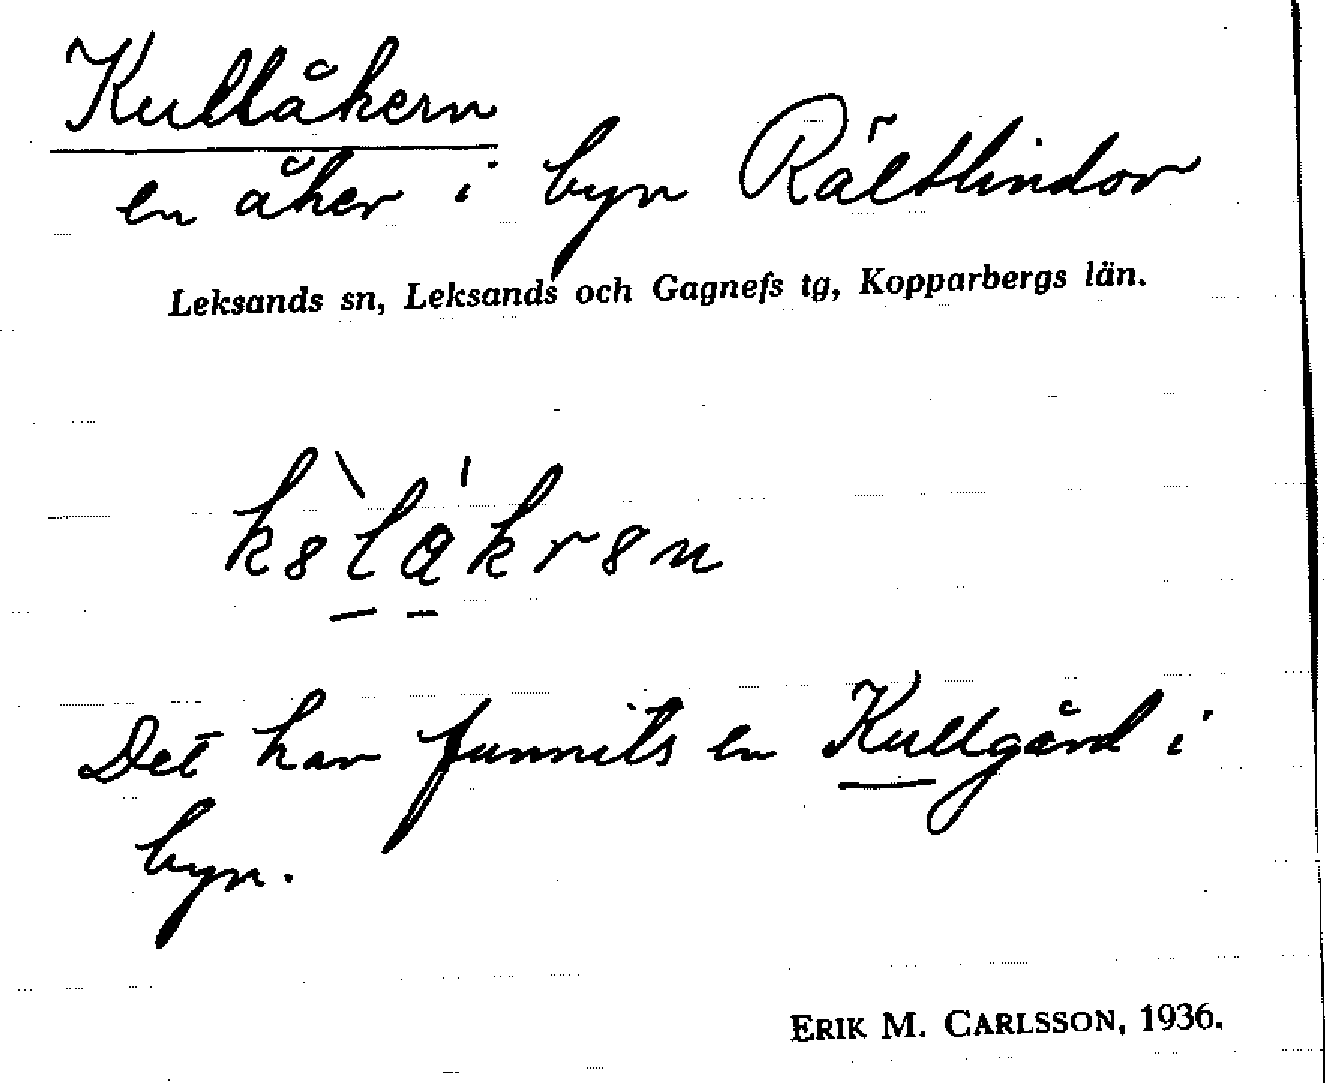 Kullåkern
en åker i byn Rältlindor
Leksands sn, Leksands och Gagnefs tg, Kopparbergs län.
Det har funnits en Kullgård i
byn.
ERIK M. CARLSSON, 1936.